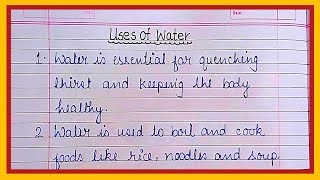 Date
Uses of Water
1. Water is essential for quenching
thirst and keeping the body
healthy.
2 Water is used to boil and cook
foods like rice, noodles and soup.